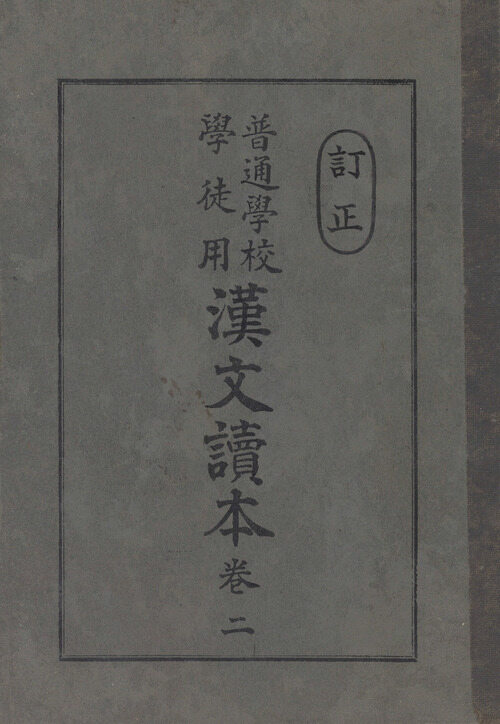 訂正
普通學校
學徒用
漢文讀本
卷二